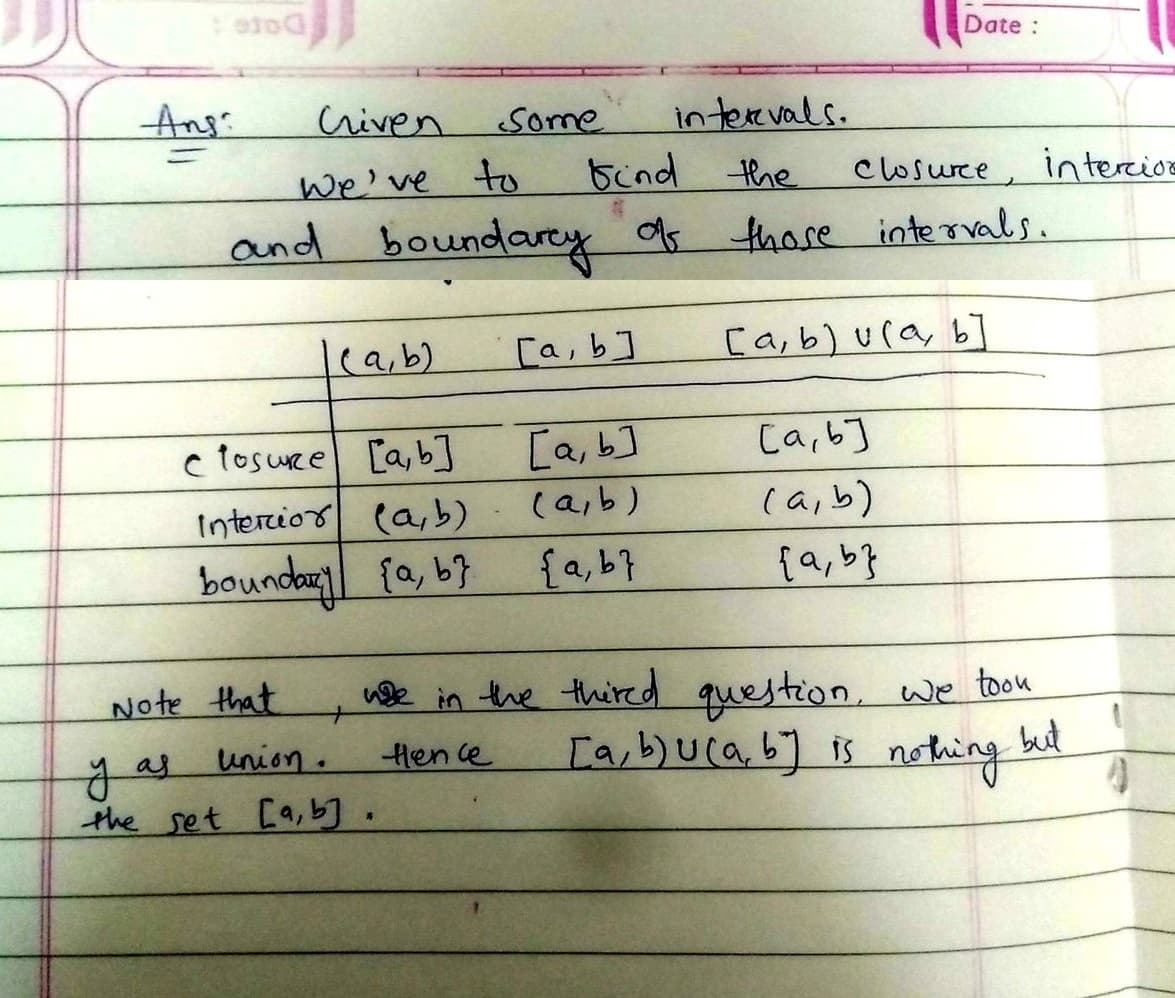 Date :
Ans: Given some intervals.
We've to find the closure, interior
and boundary of those intervals.
(a,b) [a,b] [a,b) ∪ (a,b]
closure [a,b] [a,b] [a,b]
Interior (a,b) (a,b) (a,b)
boundary {a,b} {a,b} {a,b}
Note that, in the third question, we took
y as union. Hence [a,b) ∪ (a,b] is nothing but
the set [a,b].